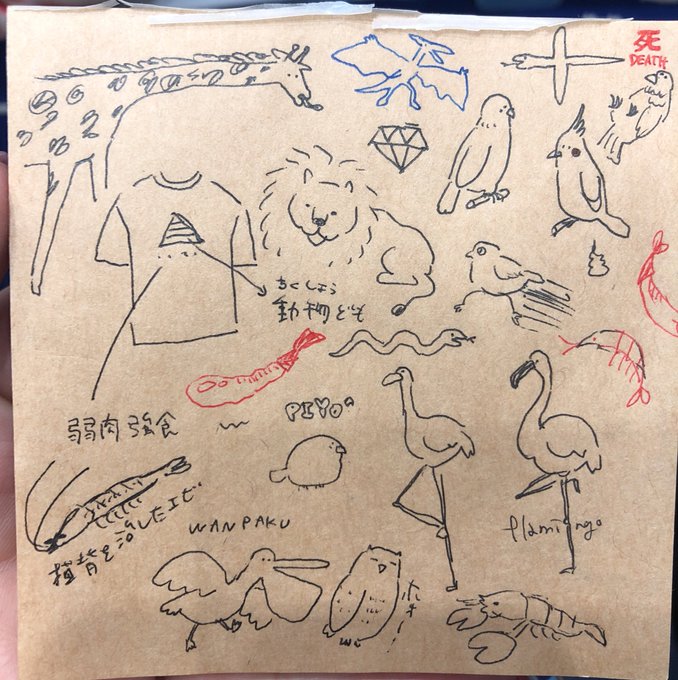 死
DEATH
ちくしょう
動物ども
弱肉強食
PIYO
WANPAKU
flamingo
猫背を治したエビ
ホホー